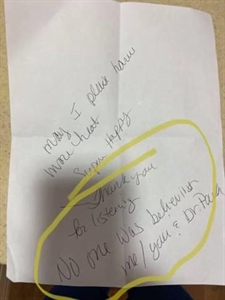 may I please have
more heat
Super Happy
Thank you
for listening
No one was believing
me / you & Dr.